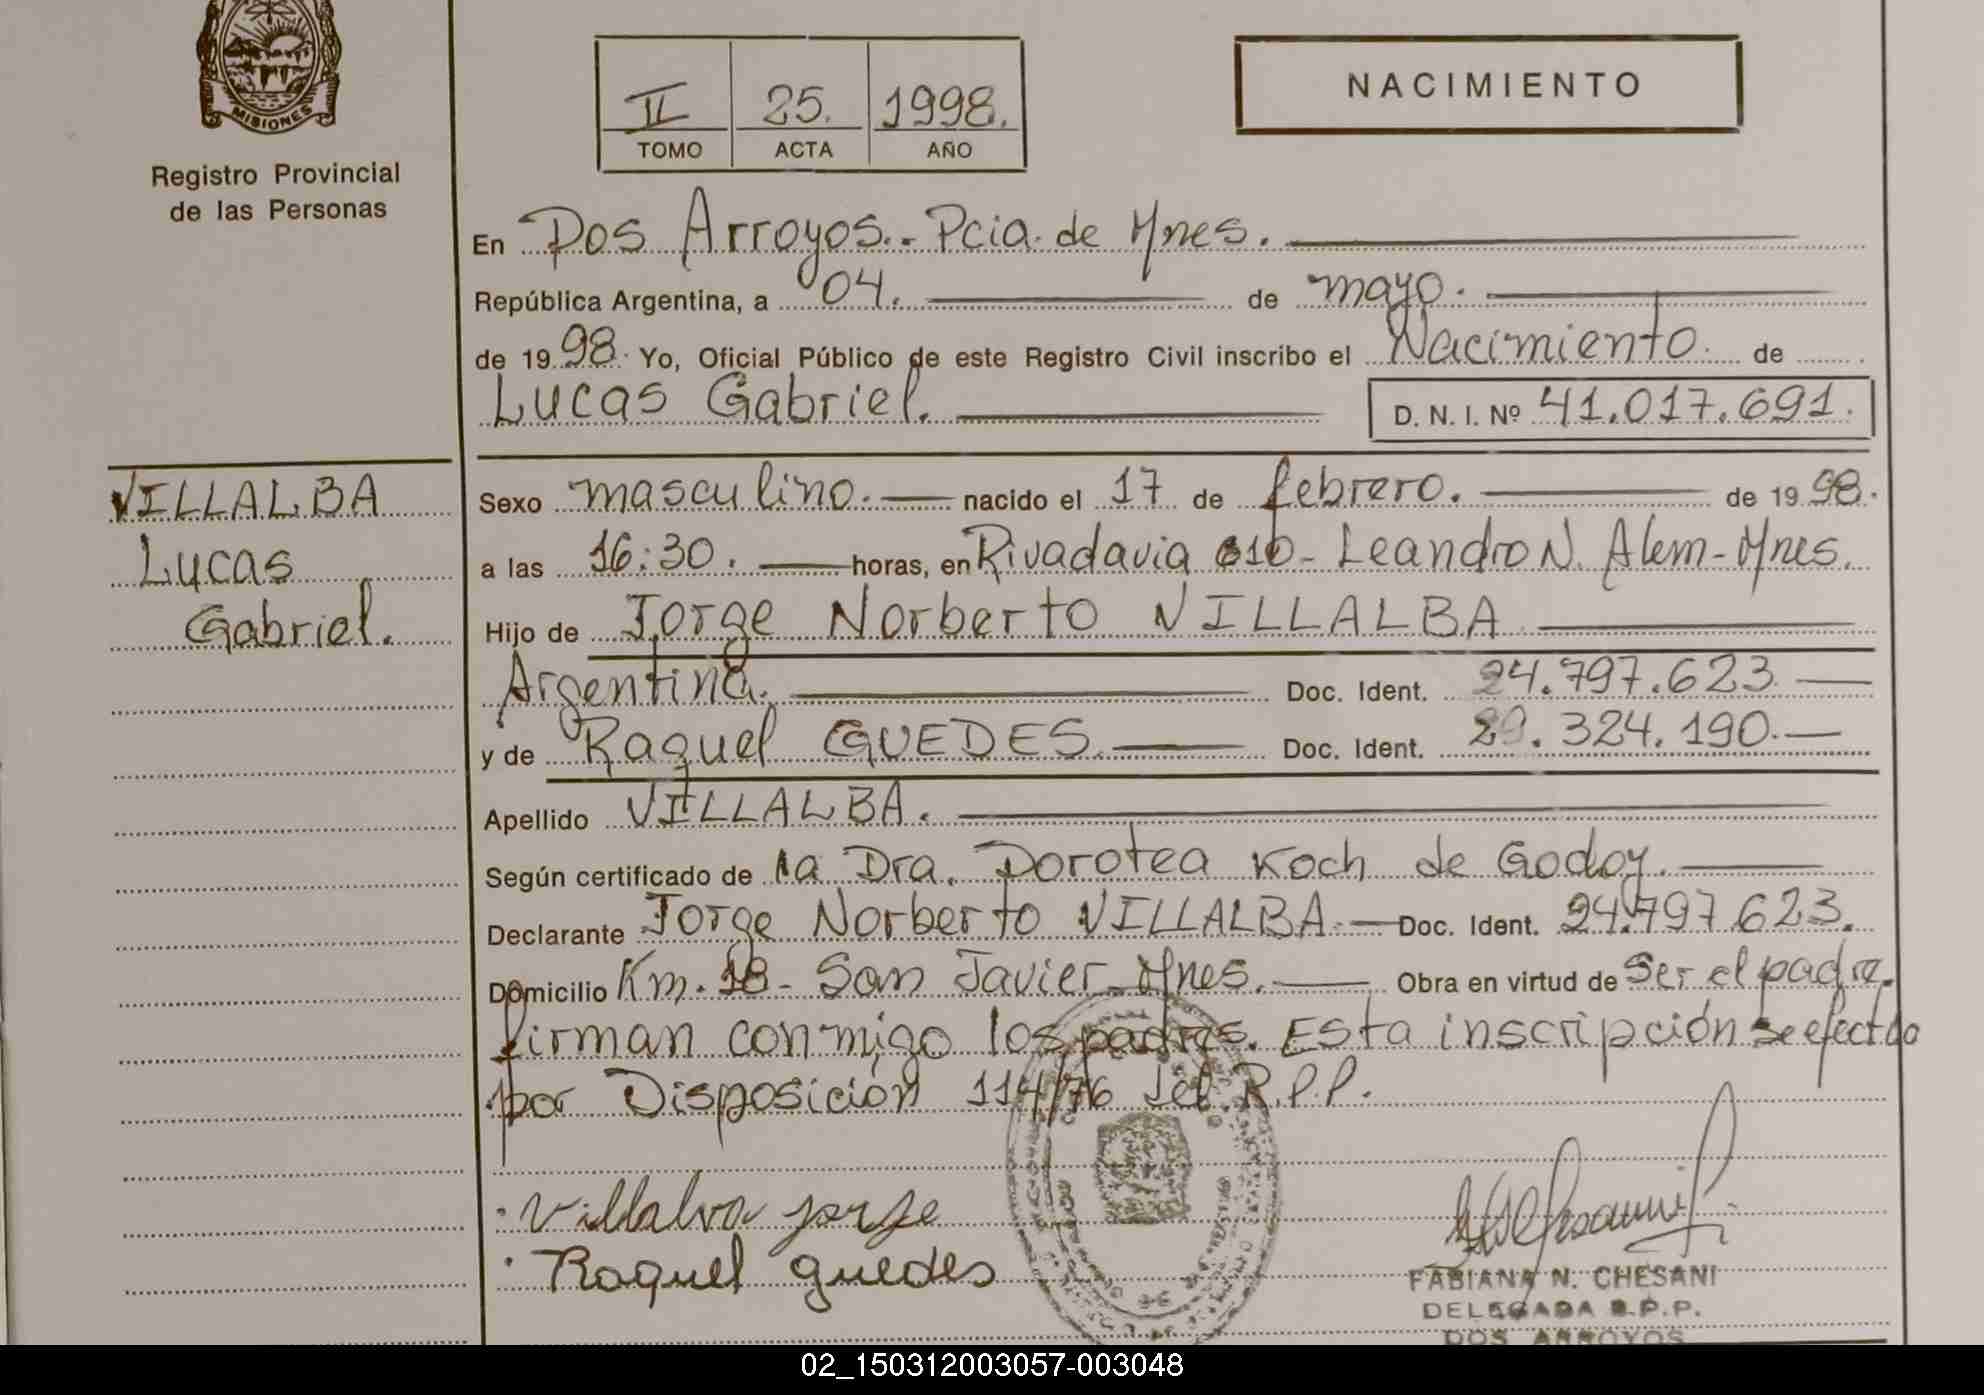 MISIONES
Registro Provincial
de las Personas
II 25. 1998.
TOMO ACTA AÑO
NACIMIENTO
En Dos Arroyos.- Pcia. de Mnes.
República Argentina, a 04. de mayo.
de 19 98. Yo, Oficial Público de este Registro Civil inscribo el Nacimiento. de
Lucas Gabriel. D. N. I. Nº 41.017.691.
VILLALBA
Lucas
Gabriel.
Sexo masculino. nacido el 17 de febrero. de 19 98.
a las 16:30. horas, en Rivadavia 610- Leandro N. Alem- Mnes.
Hijo de Jorge Norberto VILLALBA
Argentina. Doc. Ident. 24.797.623.
y de Raquel GUEDES. Doc. Ident. 29.324.190.
Apellido VILLALBA.
Según certificado de la Dra. Dorotea Koch de Godoy.
Declarante Jorge Norberto VILLALBA. Doc. Ident. 24.797.623.
Domicilio Km. 18- San Javier Mnes. Obra en virtud de Ser el padre.
firman conmigo los padres. Esta inscripción se efectúo
por Disposición 114/76 del R.P.P.
Villalva jorge
Raquel guedes
FABIANA N. CHESANI
DELEGADA R.P.P.
DOS ARROYOS
02_150312003057-003048